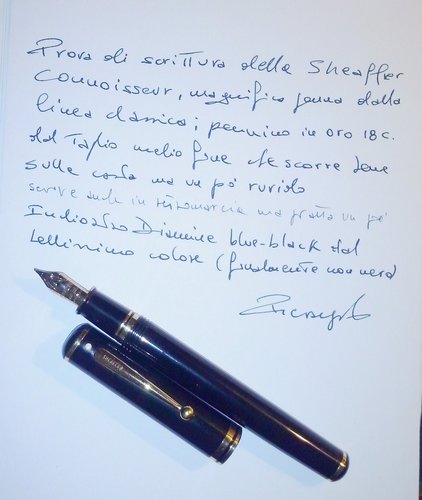 Prova di scrittura della Sheaffer
Connoisseur, magnifica penna dalla
linea classica; pennino in oro 18 c.
dal taglio medio fine che scorre bene
sulla carta ma un po' ruvido
scrive anche in retromarcia ma gratta un po'
Inchiostro Diamine blue-black dal
bellissimo colore (finalmente non nero)
SHEAFFER